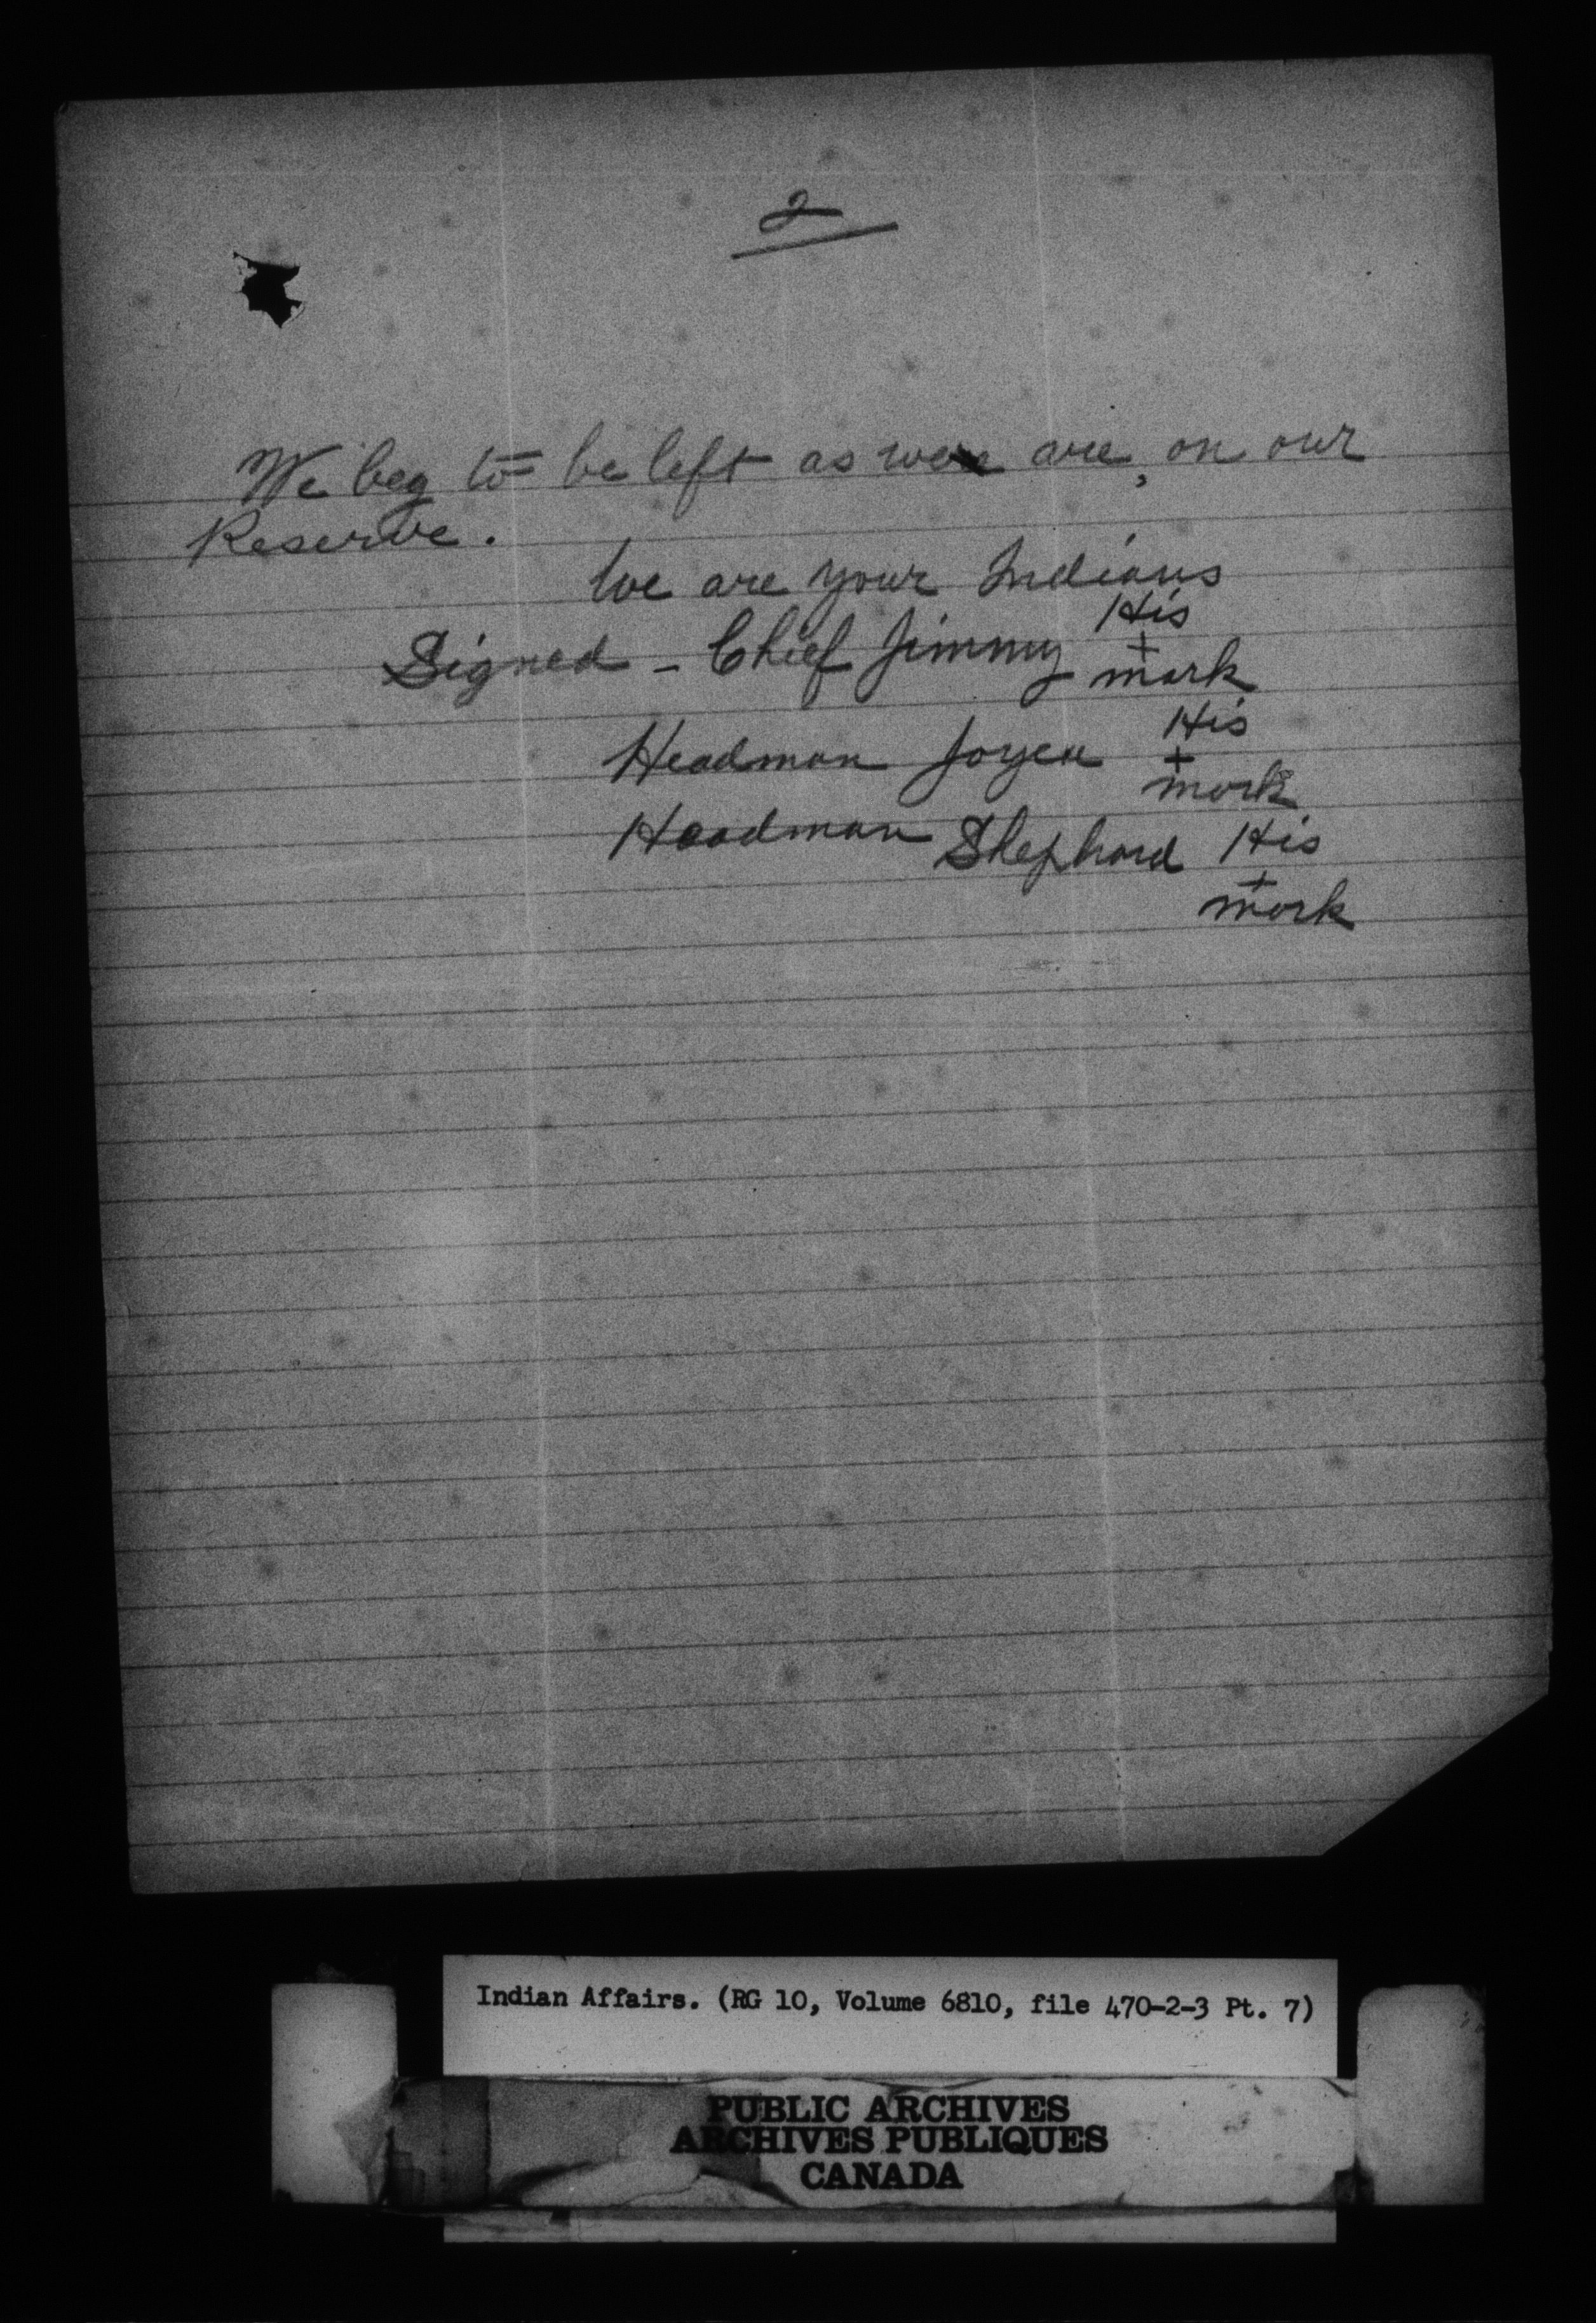 2
We beg to be left as we are, on our
Reserve.
We are your Indians
His
Signed - Chief Jimmy +
mark
His
Headman Joyea +
mark
Headman Shephard His
+
mark
Indian Affairs. (RG 10, Volume 6810, file 470-2-3 Pt. 7)
PUBLIC ARCHIVES
ARCHIVES PUBLIQUES
CANADA